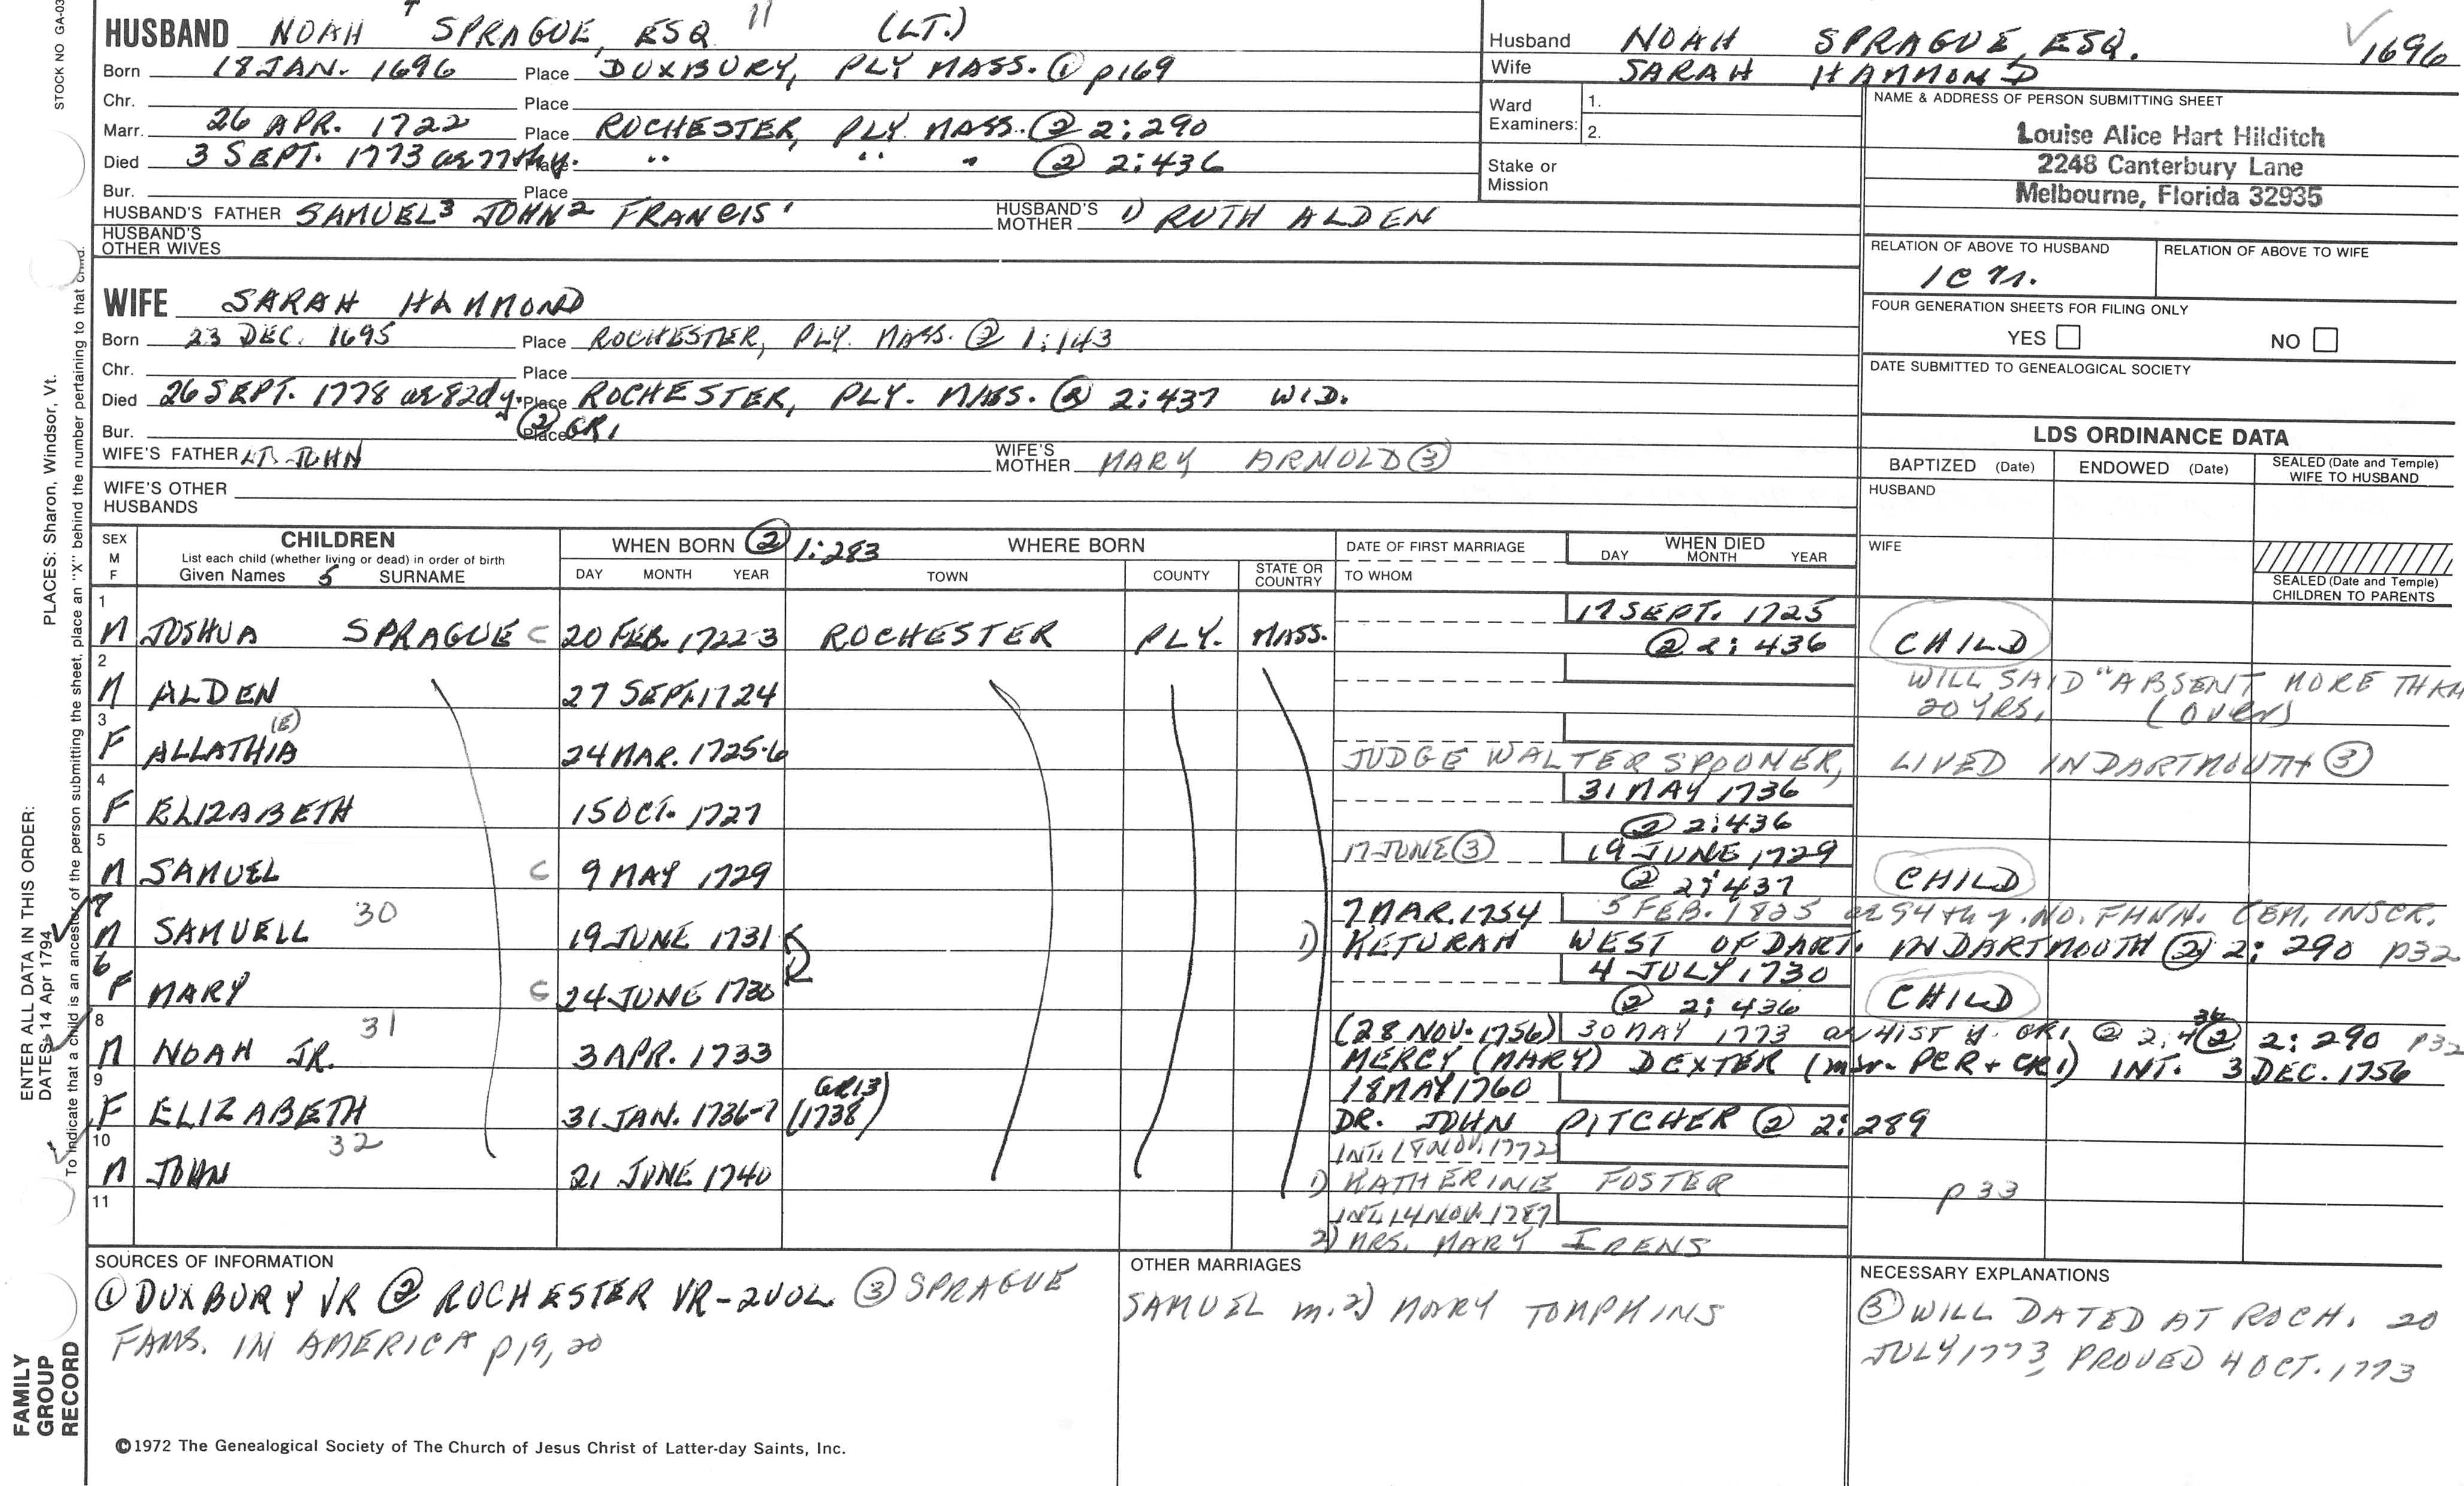 STOCK NO GA-03
HUSBAND NOAH 4 SPRAGUE, ESQ 11 (LT.)
Born 18 JAN. 1696 Place DUXBURY, PLY MASS. ① p169
Chr. Place
Marr. 26 APR. 1722 Place ROCHESTER, PLY. MASS. ② 2:290
Died 3 SEPT. 1773 ae 77th y. Place " " " ② 2:436
Bur. Place
HUSBAND'S FATHER SAMUEL3 JOHN2 FRANCIS1 HUSBAND'S MOTHER 1) RUTH ALDEN
HUSBAND'S OTHER WIVES
Husband NOAH SPRAGUE, ESQ. 1696
Wife SARAH HAMMOND
Ward Examiners: 1.
2.
Stake or Mission
NAME & ADDRESS OF PERSON SUBMITTING SHEET
Louise Alice Hart Hilditch
2248 Canterbury Lane
Melbourne, Florida 32935
RELATION OF ABOVE TO HUSBAND RELATION OF ABOVE TO WIFE
1C
FOUR GENERATION SHEETS FOR FILING ONLY
YES NO
DATE SUBMITTED TO GENEALOGICAL SOCIETY
WIFE SARAH HAMMOND
Born 23 DEC. 1695 Place ROCHESTER, PLY. MASS. ② 1:143
Chr. Place
Died 26 SEPT. 1778 ae 82d y. Place ROCHESTER, PLY. MASS. ② 2:437 WID.
Bur. Place ② GR1
WIFE'S FATHER LT. JOHN WIFE'S MOTHER MARY ARNOLD ③
WIFE'S OTHER HUSBANDS
LDS ORDINANCE DATA
BAPTIZED (Date) ENDOWED (Date) SEALED (Date and Temple) WIFE TO HUSBAND
HUSBAND
WIFE
SEALED (Date and Temple) CHILDREN TO PARENTS
SEX M F CHILDREN List each child (whether living or dead) in order of birth Given Names 5 SURNAME
WHEN BORN ② 1:283 DAY MONTH YEAR
WHERE BORN TOWN COUNTY STATE OR COUNTRY
DATE OF FIRST MARRIAGE TO WHOM
WHEN DIED DAY MONTH YEAR
1 17 SEPT. 1725
M JOSHUA SPRAGUE C 20 FEB. 1722-3 ROCHESTER PLY. MASS. ② 2:436 CHILD
2 WILL SAID "ABSENT MORE THAN
M ALDEN 27 SEPT. 1724 20 YRS. (OVER)
3 (E)
F ALLATHIA 24 MAR. 1725-6 JUDGE WALTER SPOONER, LIVED IN DARTMOUTH ③
4 31 MAY 1736
F ELIZABETH 15 OCT. 1727 ② 2:436
5 17 JUNE ③ 19 JUNE, 1729
M SAMUEL C 9 MAY 1729 ② 2:437 CHILD
7 30 7 MAR. 1754 5 FEB. 1825 ae 94th y. NO. FHVN. CEM. INSCR.
M SAMUELL 19 JUNE 1731 1) KETURAH WEST OF DART. IN DARTMOUTH ② 2:290 p32
6 4 JULY, 1730
F MARY C 24 JUNE 1730 ② 2:436 CHILD
8 31 (28 NOV. 1756) 30 MAY 1773 ae 41st y. GR1 ② 2:436
M NOAH JR. 3 APR. 1733 MERCY (MARY) DEXTER (int. PCR + CR1) INT. 3 DEC. 1756 ② 2:290 p32
9 GR13 18 MAY 1760
F ELIZABETH 31 JAN. 1736-7 (1738) DR. JOHN PITCHER ② 2:289
10 32 INT. 18 NOV. 1772
M JOHN 21 JUNE 1740 1) KATHERINE FOSTER p33
11 INT. 14 NOV. 1787
2) MRS. MARY IRENS
SOURCES OF INFORMATION
① DUXBURY VR ② ROCHESTER VR-2VOL ③ SPRAGUE
FAMS. IN AMERICA p19, 20
OTHER MARRIAGES
SAMUEL m. 2) MARY TOMPKINS
NECESSARY EXPLANATIONS
③ WILL DATED AT ROCH. 20
JULY 1773, PROVED 4 OCT. 1773
©1972 The Genealogical Society of The Church of Jesus Christ of Latter-day Saints, Inc.
FAMILY GROUP RECORD
ENTER ALL DATA IN THIS ORDER:
DATES: 14 Apr 1794
PLACES: Sharon, Windsor, Vt.
To indicate that a child is an ancestor of the person submitting the sheet, place an "X" behind the number pertaining to that child.